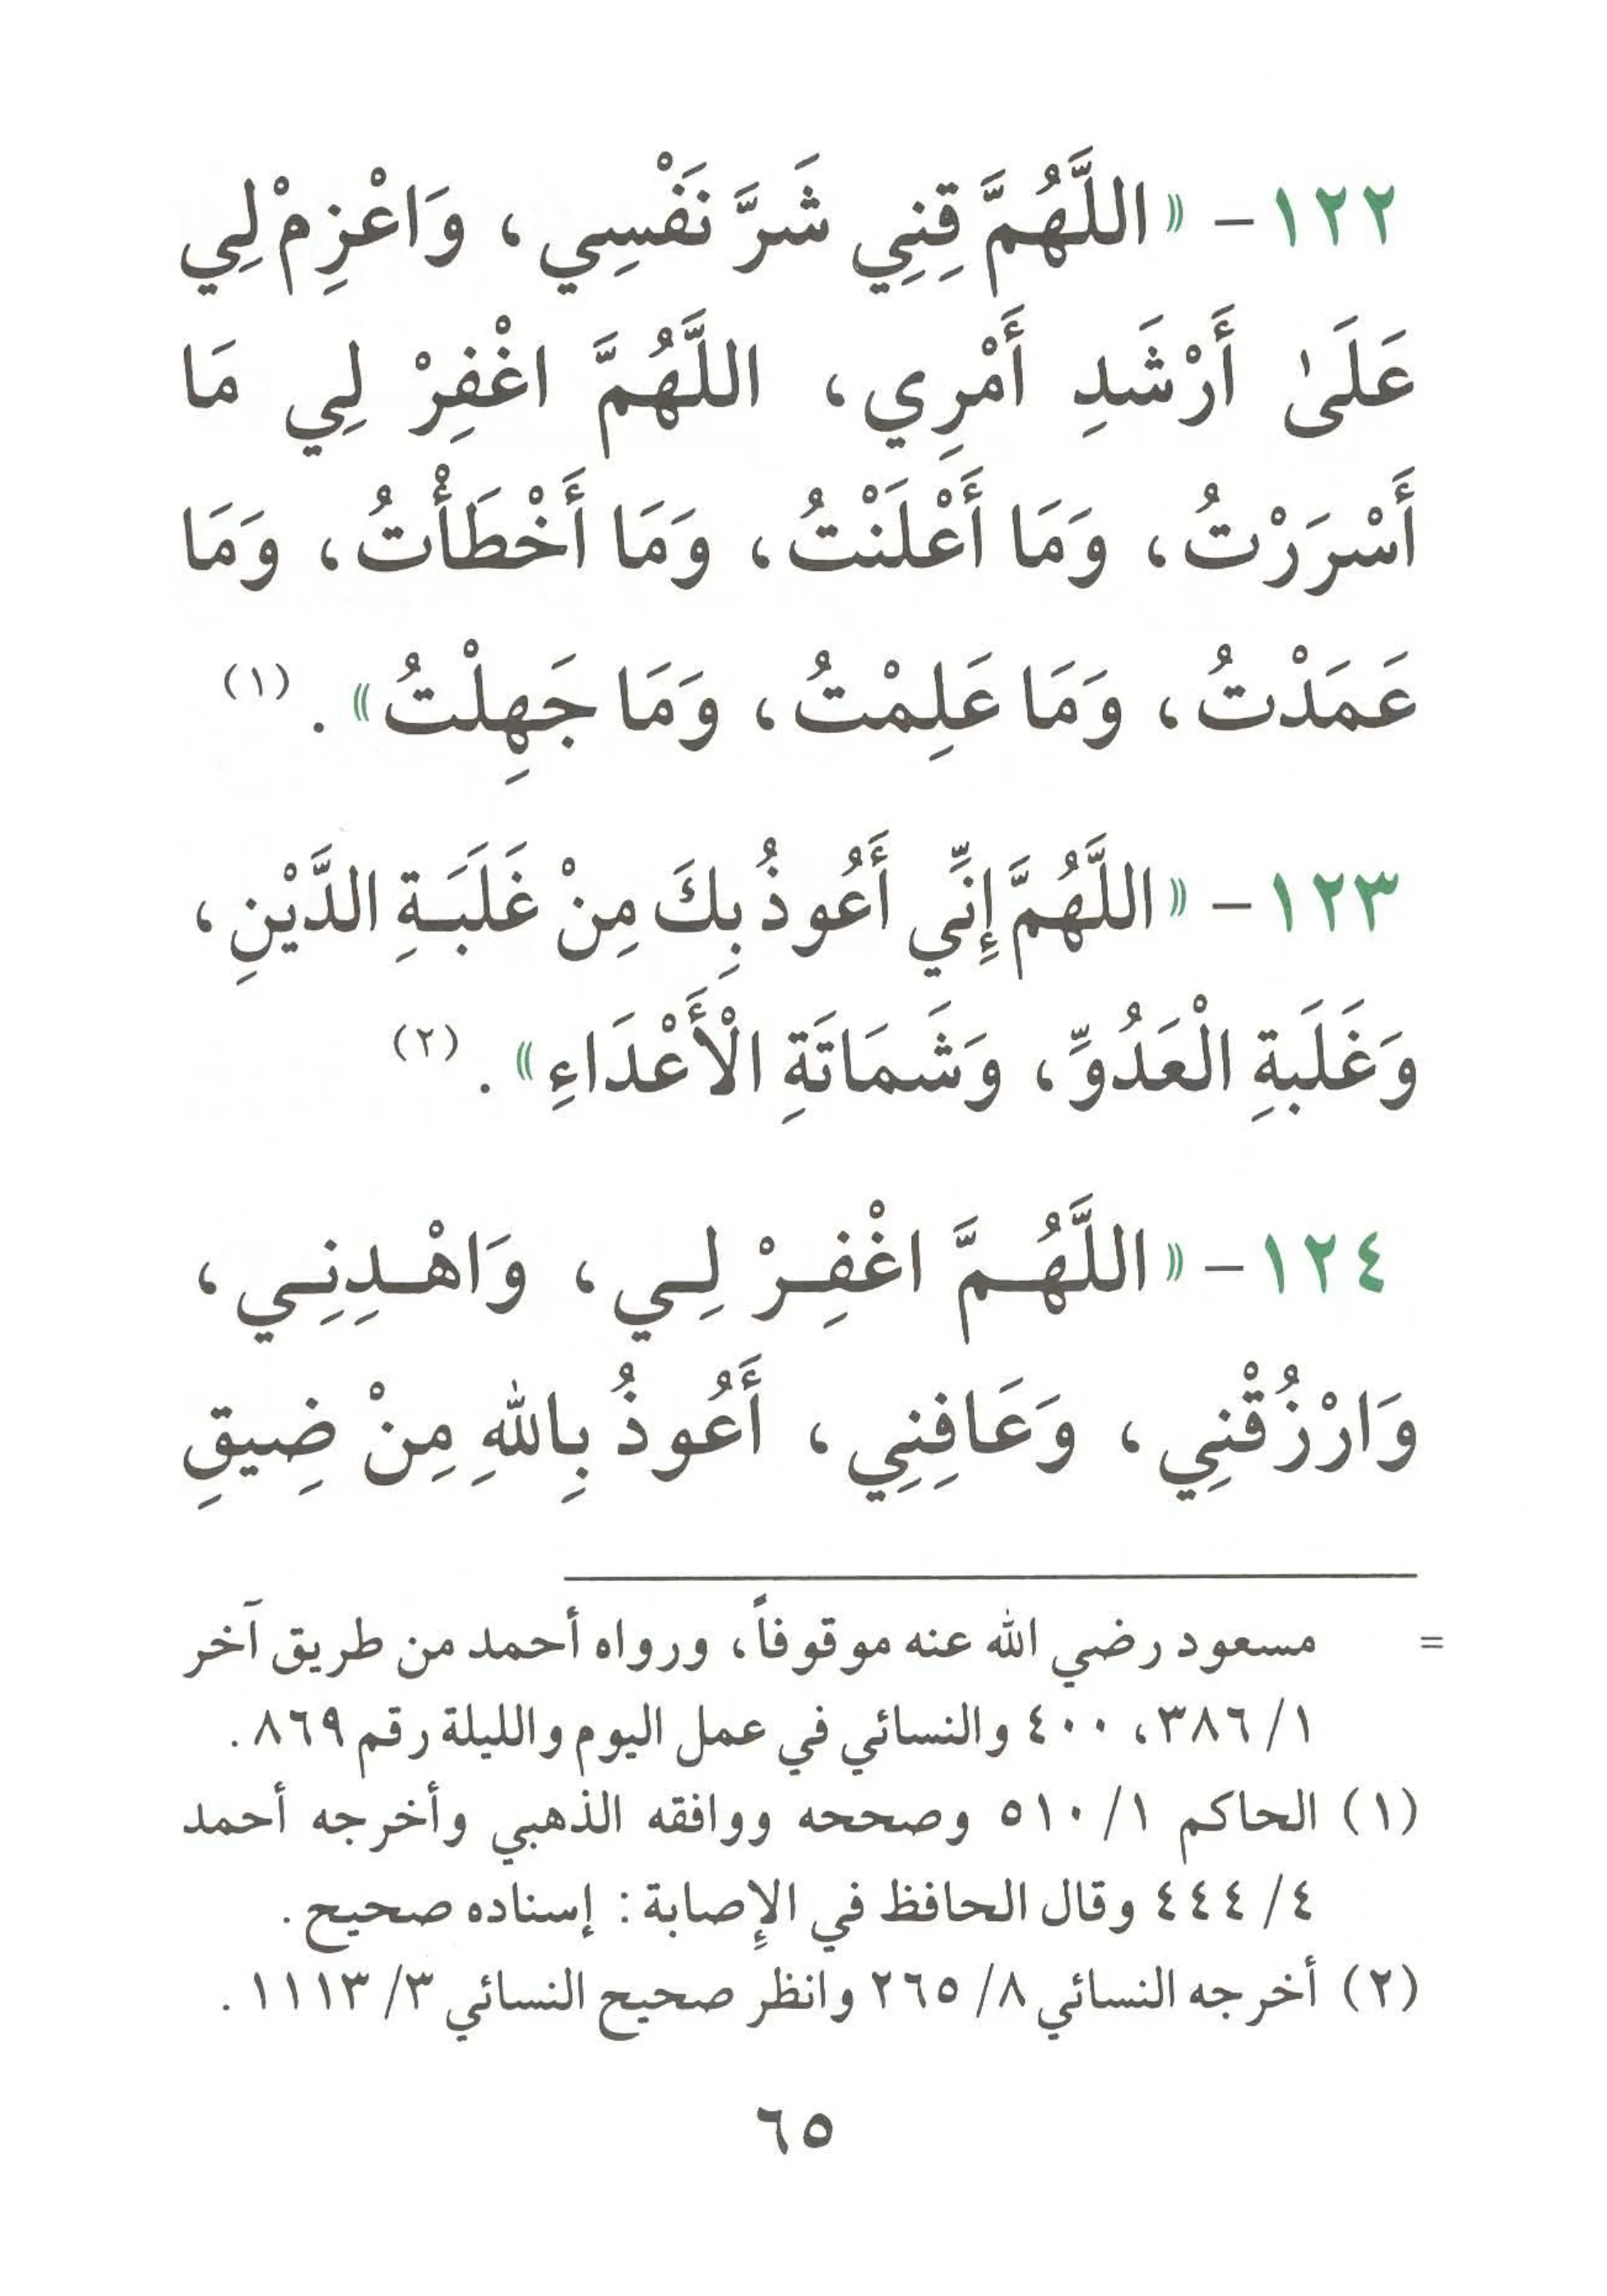 ١٢٢- «اللَّهُمَّ قِنِي شَرَّ نَفْسِي، وَاعْزِمْ لِي
عَلَىٰ أَرْشَدِ أَمْرِي، اللَّهُمَّ اغْفِرْ لِي مَا
أَسْرَرْتُ، وَمَا أَعْلَنْتُ، وَمَا أَخْطَأْتُ، وَمَا
عَمَدْتُ، وَمَا عَلِمْتُ، وَمَا جَهِلْتُ». (١)
١٢٣- «اللَّهُمَّ إِنِّي أَعُوذُ بِكَ مِنْ غَلَبَـةِ الدَّيْنِ،
وَغَلَبةِ الْعَدُوِّ، وَشَمَاتَةِ الْأَعْدَاءِ». (٢)
١٢٤- «اللَّهُـمَّ اغْفِـرْ لِـي، وَاهْـدِنِـي،
وَارْزُقْنِي، وَعَافِنِي، أَعُوذُ بِاللهِ مِنْ ضِيقِ
= مسعود رضي الله عنه موقوفاً، ورواه أحمد من طريق آخر
١/ ٣٨٦، ٤٠٠ والنسائي في عمل اليوم والليلة رقم ٨٦٩.
(١) الحاكم ١/ ٥١٠ وصححه ووافقه الذهبي وأخرجه أحمد
٤/ ٤٤٤ وقال الحافظ في الإِصابة: إسناده صحيح.
(٢) أخرجه النسائي ٨/ ٢٦٥ وانظر صحيح النسائي ٣/ ١١١٣.
٦٥